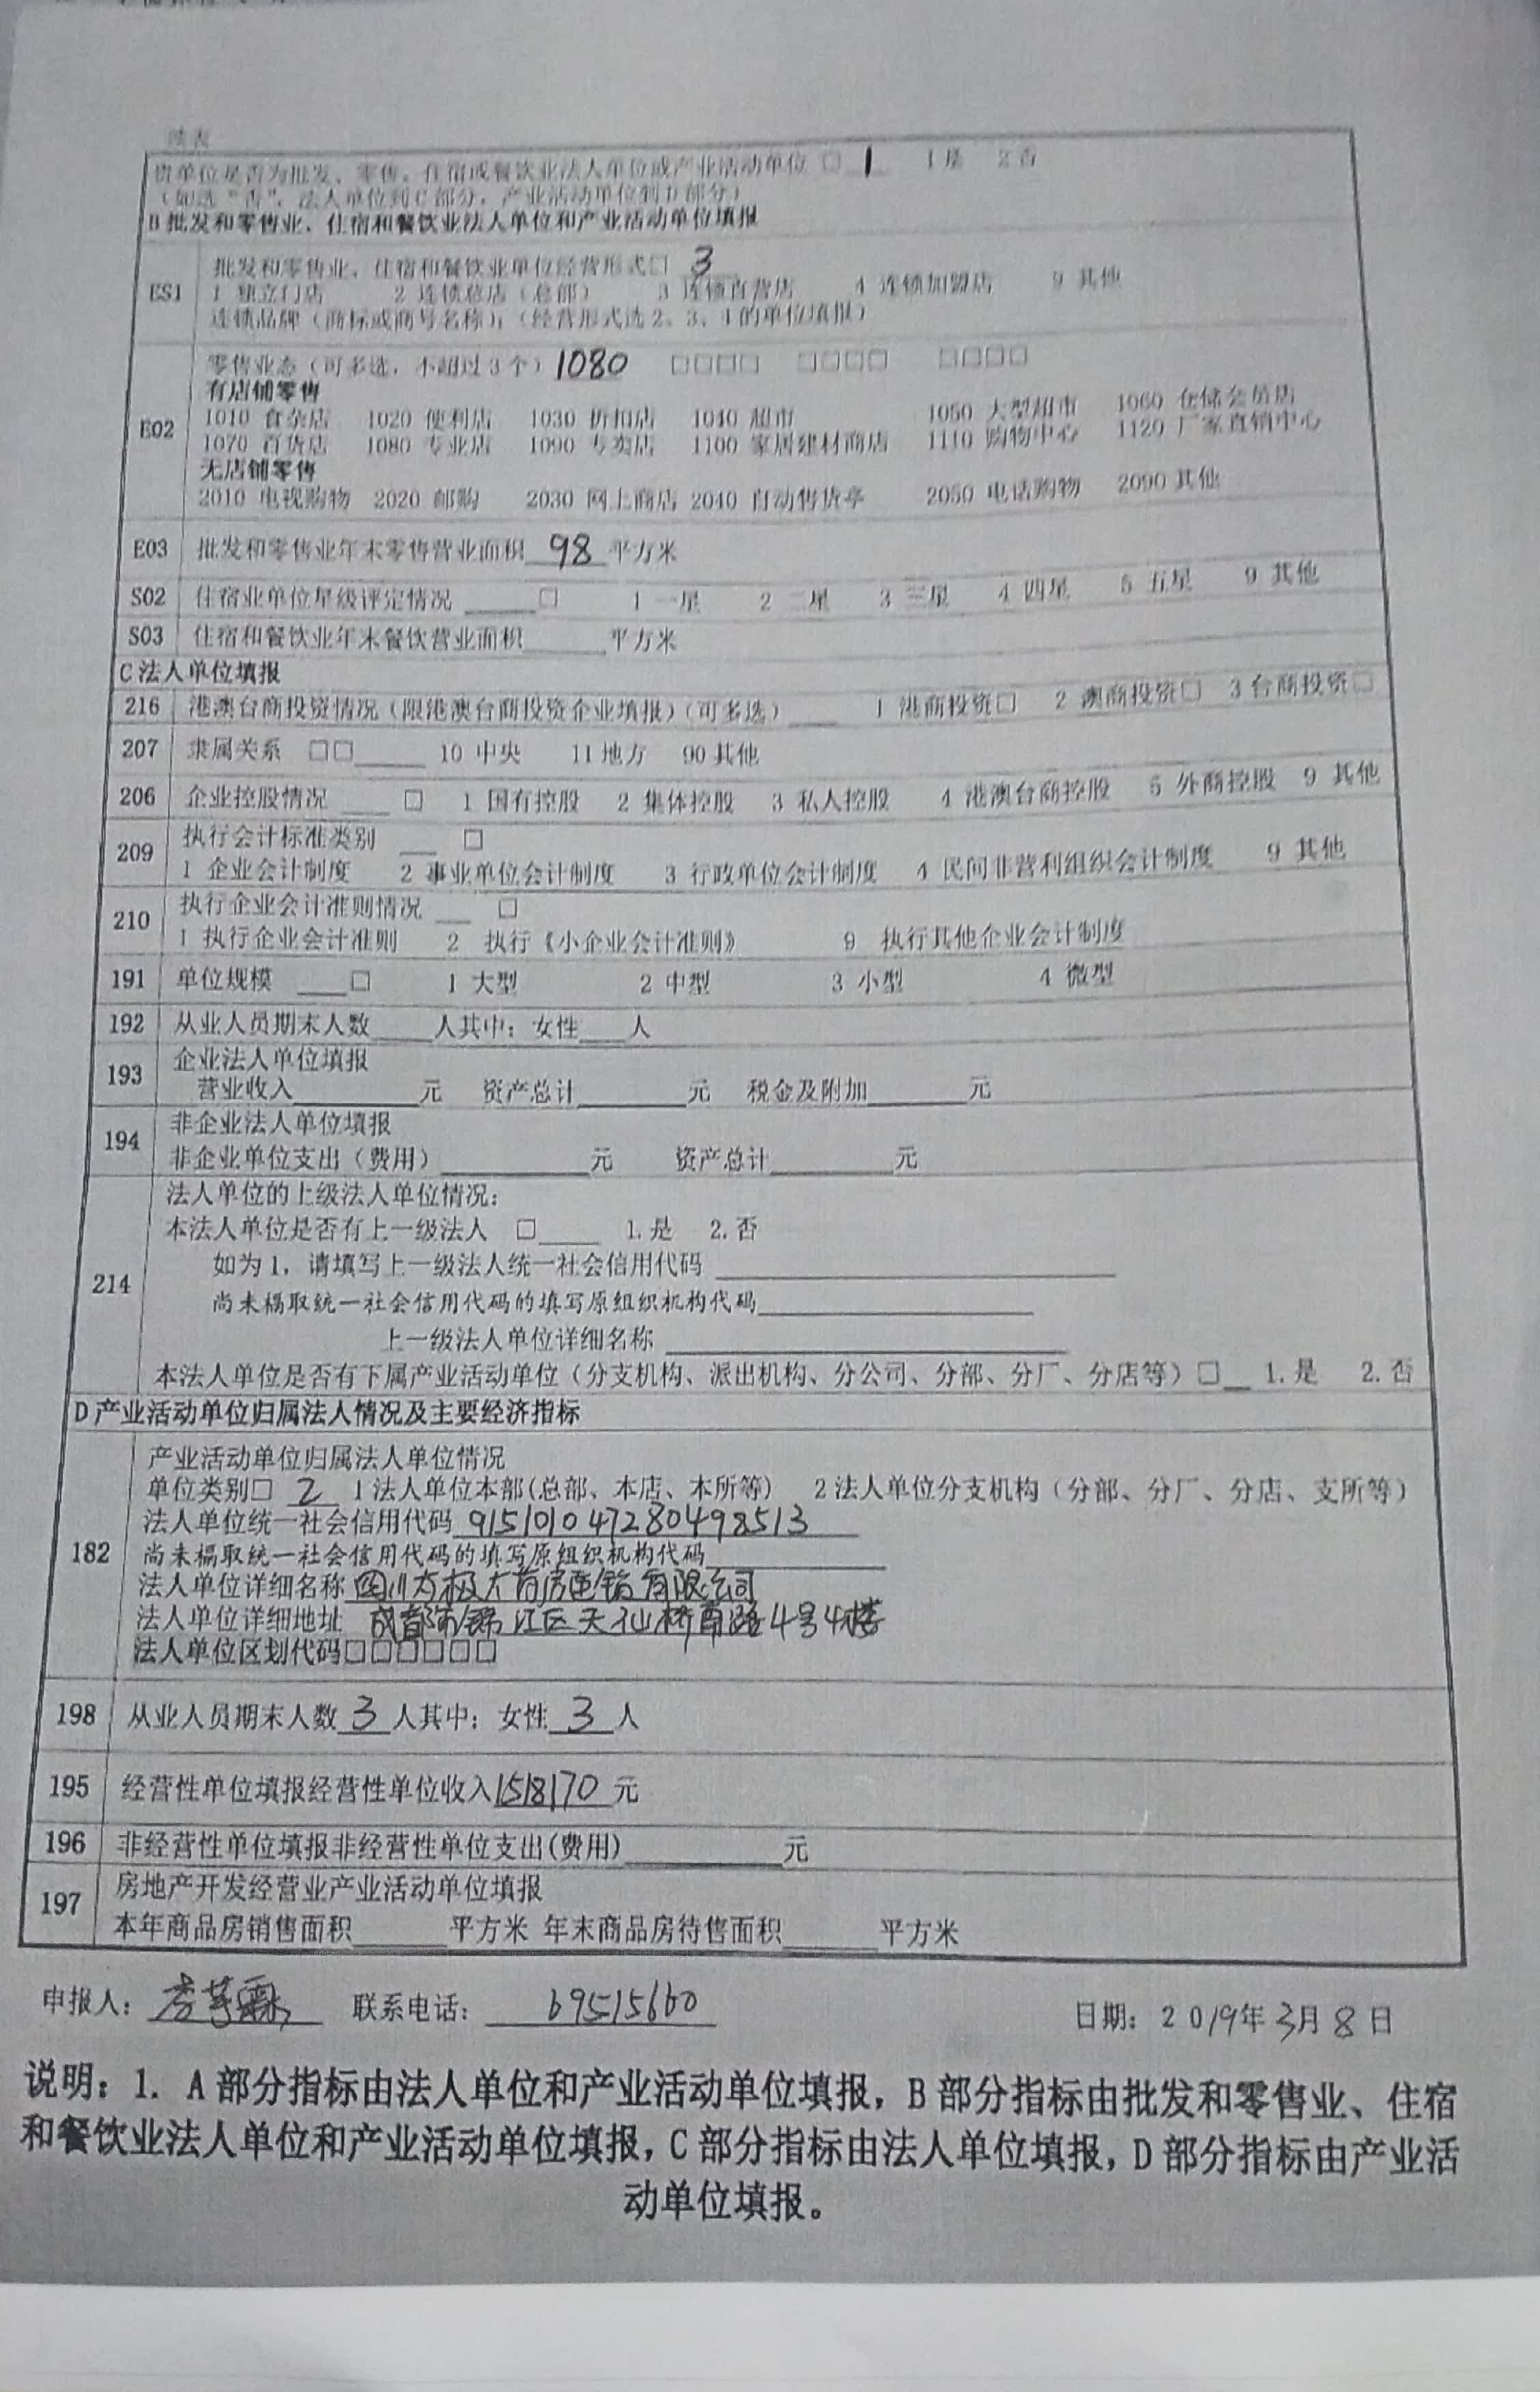 续表
贵单位是否为批发、零售、住宿或餐饮业法人单位或产业活动单位 □ 1 1是 2否
（如选“否”，法人单位到C部分，产业活动单位到D部分）
B 批发和零售业、住宿和餐饮业法人单位和产业活动单位填报
ES1 批发和零售业、住宿和餐饮业单位经营形式□ 3
1 独立门店 2 连锁总店（总部） 3 连锁直营店 4 连锁加盟店 9 其他
连锁品牌（商标或商号名称）：（经营形式选2、3、4的单位填报）
零售业态（可多选，不超过3个）1080 □□□□ □□□□ □□□□
有店铺零售
1010 食杂店 1020 便利店 1030 折扣店 1040 超市 1050 大型超市 1060 仓储会员店
E02 1070 百货店 1080 专业店 1090 专卖店 1100 家居建材商店 1110 购物中心 1120 厂家直销中心
无店铺零售
2010 电视购物 2020 邮购 2030 网上商店 2040 自动售货亭 2050 电话购物 2090 其他
E03 批发和零售业年末零售营业面积 98 平方米
S02 住宿业单位星级评定情况 ____□ 1 一星 2 二星 3 三星 4 四星 5 五星 9 其他
S03 住宿和餐饮业年末餐饮营业面积____平方米
C 法人单位填报
216 港澳台商投资情况（限港澳台商投资企业填报）（可多选）____ 1 港商投资□ 2 澳商投资□ 3 台商投资□
207 隶属关系 □□____ 10 中央 11 地方 90 其他
206 企业控股情况 ____ □ 1 国有控股 2 集体控股 3 私人控股 4 港澳台商控股 5 外商控股 9 其他
209 执行会计标准类别 ____ □
1 企业会计制度 2 事业单位会计制度 3 行政单位会计制度 4 民间非营利组织会计制度 9 其他
210 执行企业会计准则情况 ____ □
1 执行企业会计准则 2 执行《小企业会计准则》 9 执行其他企业会计制度
191 单位规模 ____□ 1 大型 2 中型 3 小型 4 微型
192 从业人员期末人数____人其中：女性____人
193 企业法人单位填报
营业收入____元 资产总计____元 税金及附加____元
194 非企业法人单位填报
非企业单位支出（费用）____元 资产总计____元
法人单位的上级法人单位情况：
本法人单位是否有上一级法人 □____ 1.是 2.否
如为1，请填写上一级法人统一社会信用代码 ____
214 尚未榻取统一社会信用代码的填写原组织机构代码____
上一级法人单位详细名称 ____
本法人单位是否有下属产业活动单位（分支机构、派出机构、分公司、分部、分厂、分店等）□__ 1.是 2.否
D 产业活动单位归属法人情况及主要经济指标
产业活动单位归属法人单位情况
单位类别□ 2 1 法人单位本部(总部、本店、本所等) 2 法人单位分支机构（分部、分厂、分店、支所等）
法人单位统一社会信用代码 915101047280498513
182 尚未榻取统一社会信用代码的填写原组织机构代码____
法人单位详细名称 四川太极大药房连锁有限公司
法人单位详细地址 成都市锦江区天仙桥南路4号4楼
法人单位区划代码□□□□□□
198 从业人员期末人数 3 人其中：女性 3 人
195 经营性单位填报经营性单位收入 1518170 元
196 非经营性单位填报非经营性单位支出(费用)____元
197 房地产开发经营业产业活动单位填报
本年商品房销售面积____平方米 年末商品房待售面积____平方米
申报人： 联系电话： 69515660 日期：2019年3月8日
说明：1. A 部分指标由法人单位和产业活动单位填报，B 部分指标由批发和零售业、住宿
和餐饮业法人单位和产业活动单位填报，C 部分指标由法人单位填报，D 部分指标由产业活
动单位填报。